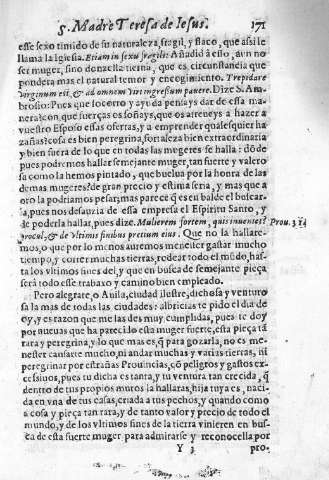 S. Madre Teresa de Iesus. 171
esse sexo timido de su naturaleza, fragil, y flaco, que assi le
llama la Iglesia. Etiam in sexu fragili: Añadid à esso, aun no
ser muger, sino donzella tierna, que es circunstancia que
pondera mas el natural temor y encogimiento. Trepidare
virginum est, & ad omnem viri ingressum pauere. Dize S. Am-
brosio: Pues que socorro y ayuda pensays dar de essa ma-
nera? con que fuerças os soñays, que os atreueys a hazer a
vuestro Esposo essas ofertas, y a emprender qualesquier ha
zañas? cosa es bien peregrina, fortaleza bien extraordinaria
y bien fuera de lo que en todas las mugeres se halla: dõ de
pues podremos hallar semejante muger, tan fuerte y valero
sa como la hemos pintado, que buelua por la honra de las
demas mugeres? de gran precio y estima seria, y mas que a
oro la podriamos pesar, mas parece q̃ es en balde el buscar-
la, pues nos desauzia de essa empresa el Espiritu Santo, y
de poderla hallar, pues dize. Mulierem fortem, quis inueniet? Prou. 31
procul, & de vltimis finibus pretium eius. Que no la hallare-
mos, o que por lo menos auremos menester gastar mucho
tiempo, y correr muchas tierras, rodear todo el mũdo, has-
ta los vltimos fines del, y que en busca de semejante pieça
será todo esse trabaxo y camino bien empleado.
Pero alegrate, o Auila, ciudad ilustre, dichosa y venturo
sa la mas de todas las ciudades: albricias te pido el dia de
oy, y es razon que me las des muy cumplidas, pues te doy
por nueuas que ha parecido esta muger fuerte, esta pieça tã
rara y peregrina, y lo que mas es, q̃ para gozarla, no es me-
nester cansarte mucho, ni andar muchas y varias tierras, ni
peregrinar por estrañas Prouincias, cõ peligros y gastos ex-
cessiuos, pues tu dicha es tanta, y tu ventura tan crecida, q̃
dentro de tus propios muros la hallaras, hija tuya es, naci-
da en vna de tus casas, criada a tus pechos, y quando como
a cosa y pieça tan rara, y de tanto valor y precio de todo el
mundo, y de los vltimos fines de la tierra vinieren en bus-
ca de esta fuerte muger para admirarse y reconocella por
Y 3 pro-